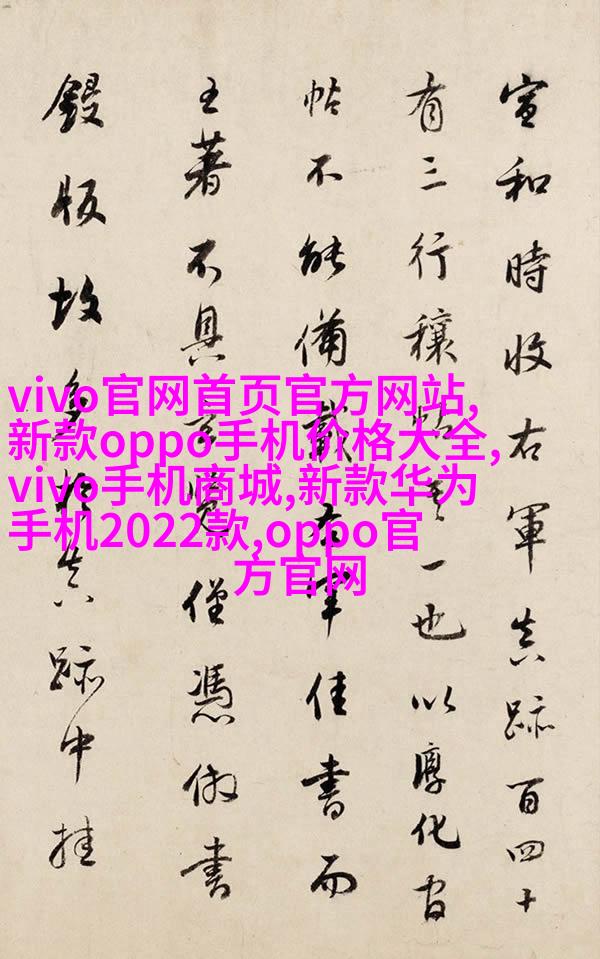 宣和時收右軍真跡百四十
有三行穰帖其一也以淳化官
帖不能備載右軍佳書而
王著不具玄覽僅憑倣書
鋟版故多於真跡中挂
vivo官网首页官方网站,
新款oppo手机价格大全,
vivo手机商城,新款华为
手机2022款,oppo官
方官网